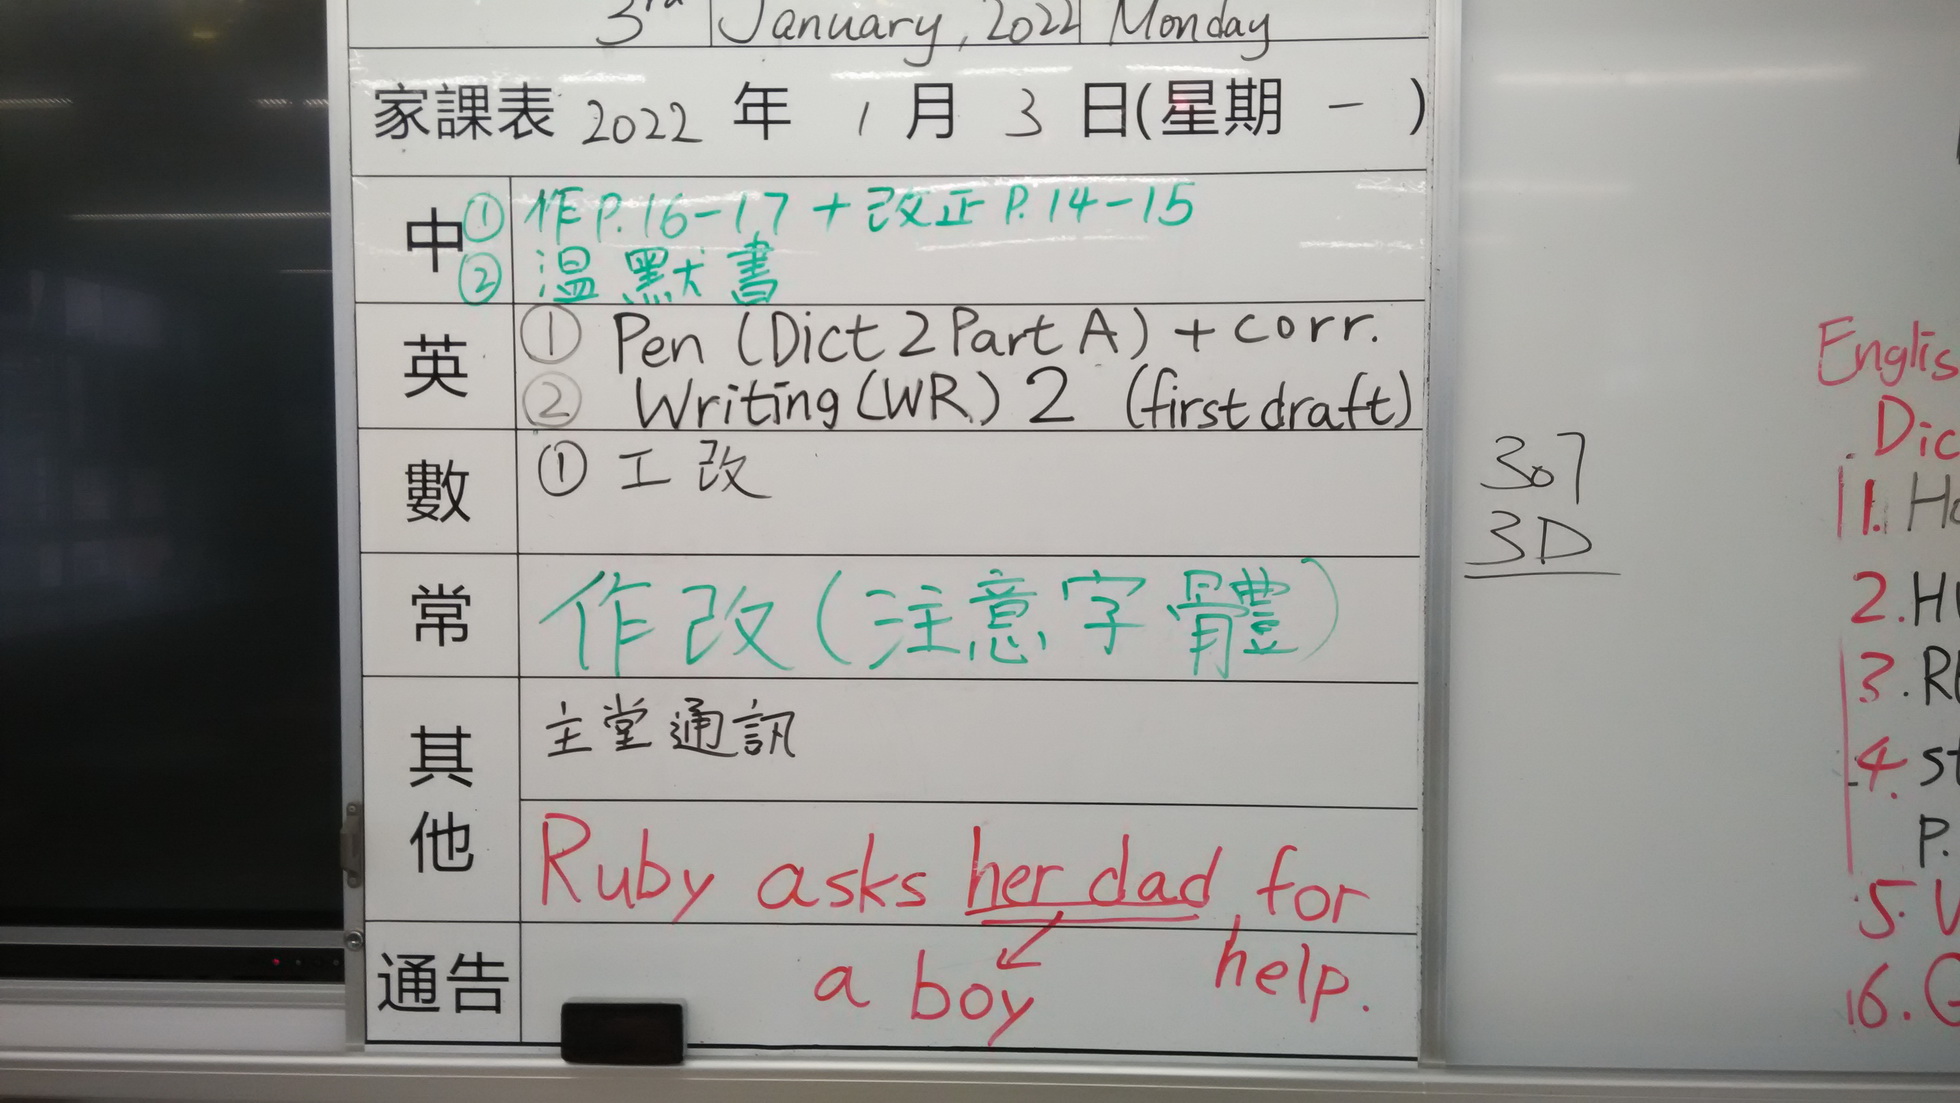 3rd January, 2022 Monday
家課表 2022 年 1 月 3 日(星期 一 )
中 ① 作P.16-17 + 改正 P.14-15
② 溫 默書
英 ① Pen (Dict 2 Part A) + corr.
② Writing (WR) 2 (first draft)
數 ① 工改
常 作改(注意字體)
其他 主堂通訊
Ruby asks her dad for
help.
通告 a boy
307
3D
Englis
Dic
1. Ho
2. H
3. R
4. st
P.
5. V
6. G